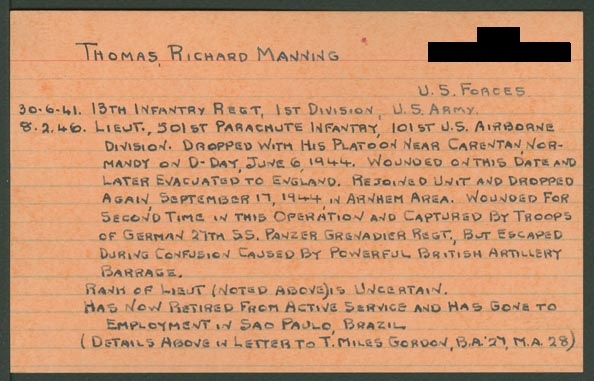 THOMAS RICHARD MANNING
U.S. FORCES.
30-6-41. 13TH INFANTRY REGT, 1ST DIVISION, U.S. ARMY.
8.2.46. LIEUT., 501ST PARACHUTE INFANTRY, 101ST U.S. AIRBORNE
DIVISION. DROPPED WITH HIS PLATOON NEAR CARENTAN, NOR-
MANDY ON D-DAY, JUNE 6, 1944. WOUNDED ON THIS DATE AND
LATER EVACUATED TO ENGLAND. REJOINED UNIT AND DROPPED
AGAIN, SEPTEMBER 17, 1944, IN ARNHEM AREA. WOUNDED FOR
SECOND TIME IN THIS OPERATION AND CAPTURED BY TROOPS
OF GERMAN 27TH SS. PANZER GRENADIER REGT., BUT ESCAPED
DURING CONFUSION CAUSED BY POWERFUL BRITISH ARTILLERY
BARRAGE.
RANK OF LIEUT (NOTED ABOVE) IS UNCERTAIN.
HAS NOW RETIRED FROM ACTIVE SERVICE AND HAS GONE TO
EMPLOYMENT IN SAO PAULO, BRAZIL.
(DETAILS ABOVE IN LETTER TO T. MILES GORDON, B.A.'27, M.A. 28)